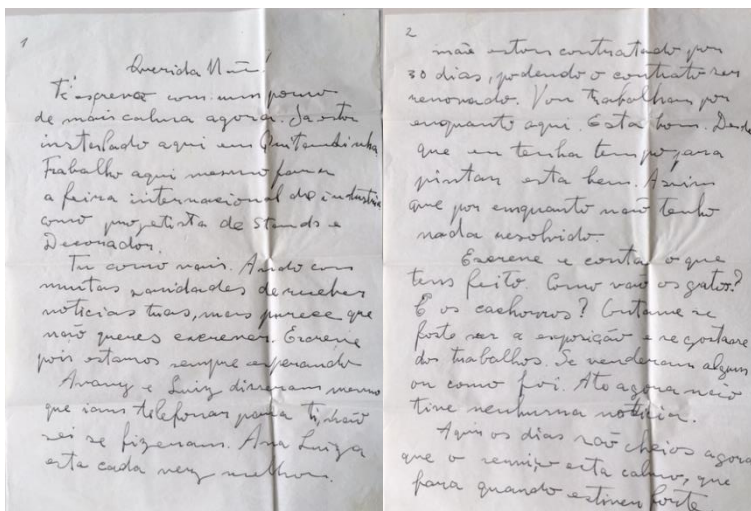 1
Querida Mãe!
Te escrevo com um pouco
de mais calma agora. Ja estou
instalado aqui em Quitandinha
Trabalho aqui mesmo para
a feira internacional de industria
como projetista de Stands e
Decorador.
Tu como vais. Ando com
muitas saudades de receber
noticias tuas, mas parece que
não queres escrever. Escreve
pois estamos sempre esperando
Avany e Luiz disseram mesmo
que iam telefonar para ti, não
sei se fizeram. Ana Luiza
esta cada vez melhor.
2
estou contratado por
30 dias, podendo o contrato ser
renovado. Vou trabalhar por
enquanto aqui. Esta bom. Desde
que eu tenha tempo para
pintar esta bem. Assim
que por enquanto não tenho
nada resolvido.
Escreve e conta o que
tens feito. Como vão os gatos?
E os cachorros? Conta-me se
foste ver a exposição e se gostare
dos trabalhos. Se venderam alguns
ou como foi. Ate agora não
tive nenhuma noticia.
Aqui os dias são cheios agora
que o serviço esta calmo, que
para quando estiver forte